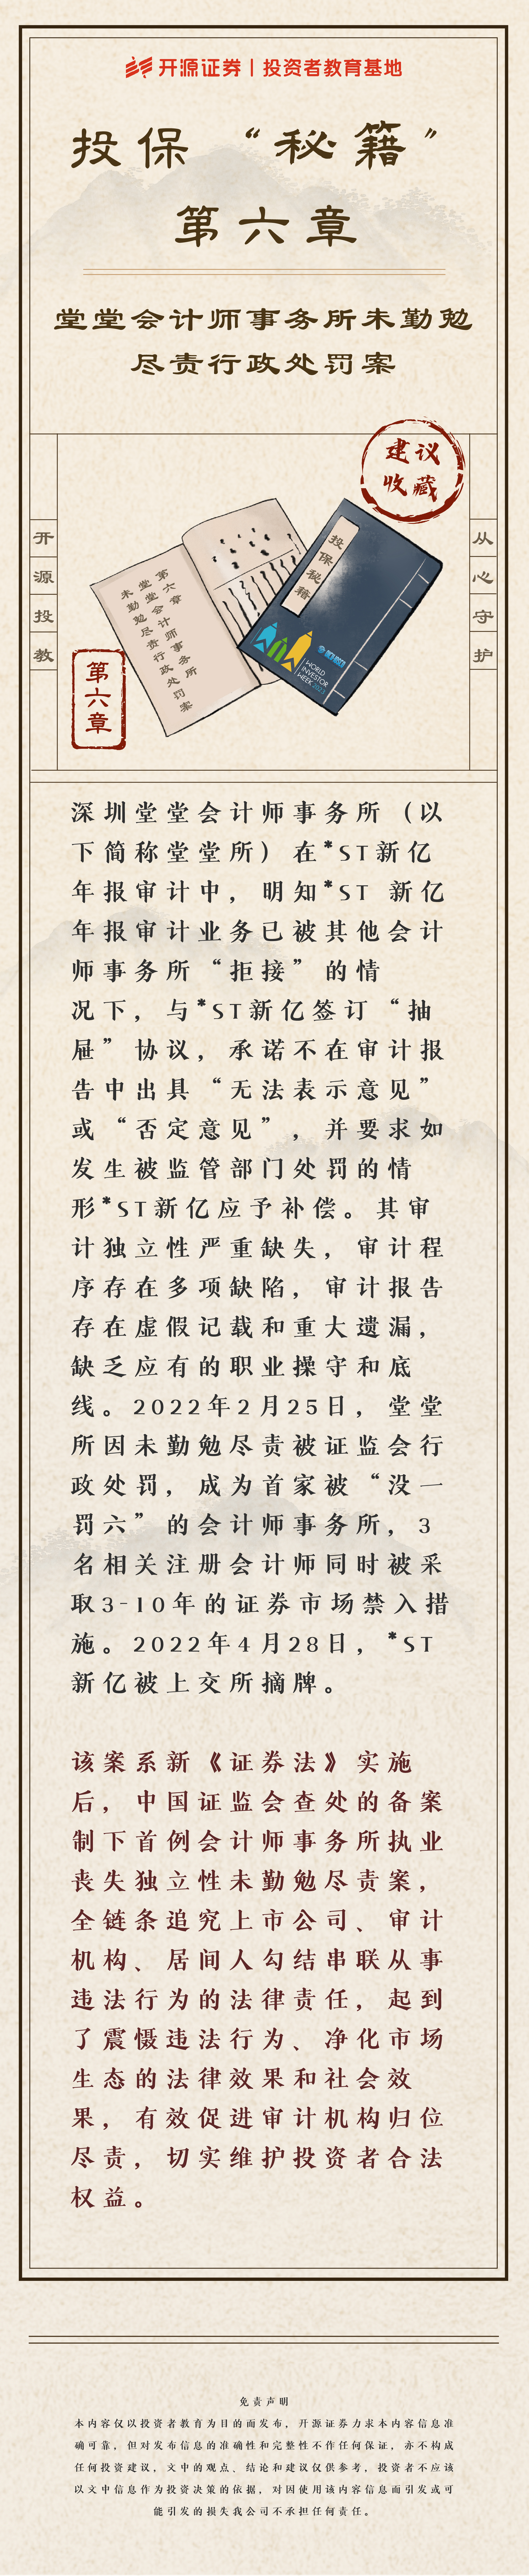 开源证券 | 投资者教育基地
投保“秘籍”
第六章
堂堂会计师事务所未勤勉
尽责行政处罚案
建议
收藏
开源投教
从心守护
第六章
堂堂会计师事务所
未勤勉尽责行政处罚案
投保秘籍
WORLD
INVESTOR
WEEK 2023
第六章
深圳堂堂会计师事务所（以
下简称堂堂所）在*ST新亿
年报审计中，明知*ST 新亿
年报审计业务已被其他会计
师事务所“拒接”的情
况下，与*ST新亿签订“抽
屉”协议，承诺不在审计报
告中出具“无法表示意见”
或“否定意见”，并要求如
发生被监管部门处罚的情
形*ST新亿应予补偿。其审
计独立性严重缺失，审计程
序存在多项缺陷，审计报告
存在虚假记载和重大遗漏，
缺乏应有的职业操守和底
线。2022年2月25日，堂堂
所因未勤勉尽责被证监会行
政处罚，成为首家被“没一
罚六”的会计师事务所，3
名相关注册会计师同时被采
取3-10年的证券市场禁入措
施。2022年4月28日，*ST
新亿被上交所摘牌。
该案系新《证券法》实施
后，中国证监会查处的备案
制下首例会计师事务所执业
丧失独立性未勤勉尽责案，
全链条追究上市公司、审计
机构、居间人勾结串联从事
违法行为的法律责任，起到
了震慑违法行为、净化市场
生态的法律效果和社会效
果，有效促进审计机构归位
尽责，切实维护投资者合法
权益。
免责声明
本内容仅以投资者教育为目的而发布，开源证券力求本内容信息准
确可靠，但对发布信息的准确性和完整性不作任何保证，亦不构成
任何投资建议，文中的观点、结论和建议仅供参考，投资者不应该
以文中信息作为投资决策的依据，对因使用该内容信息而引发或可
能引发的损失我公司不承担任何责任。